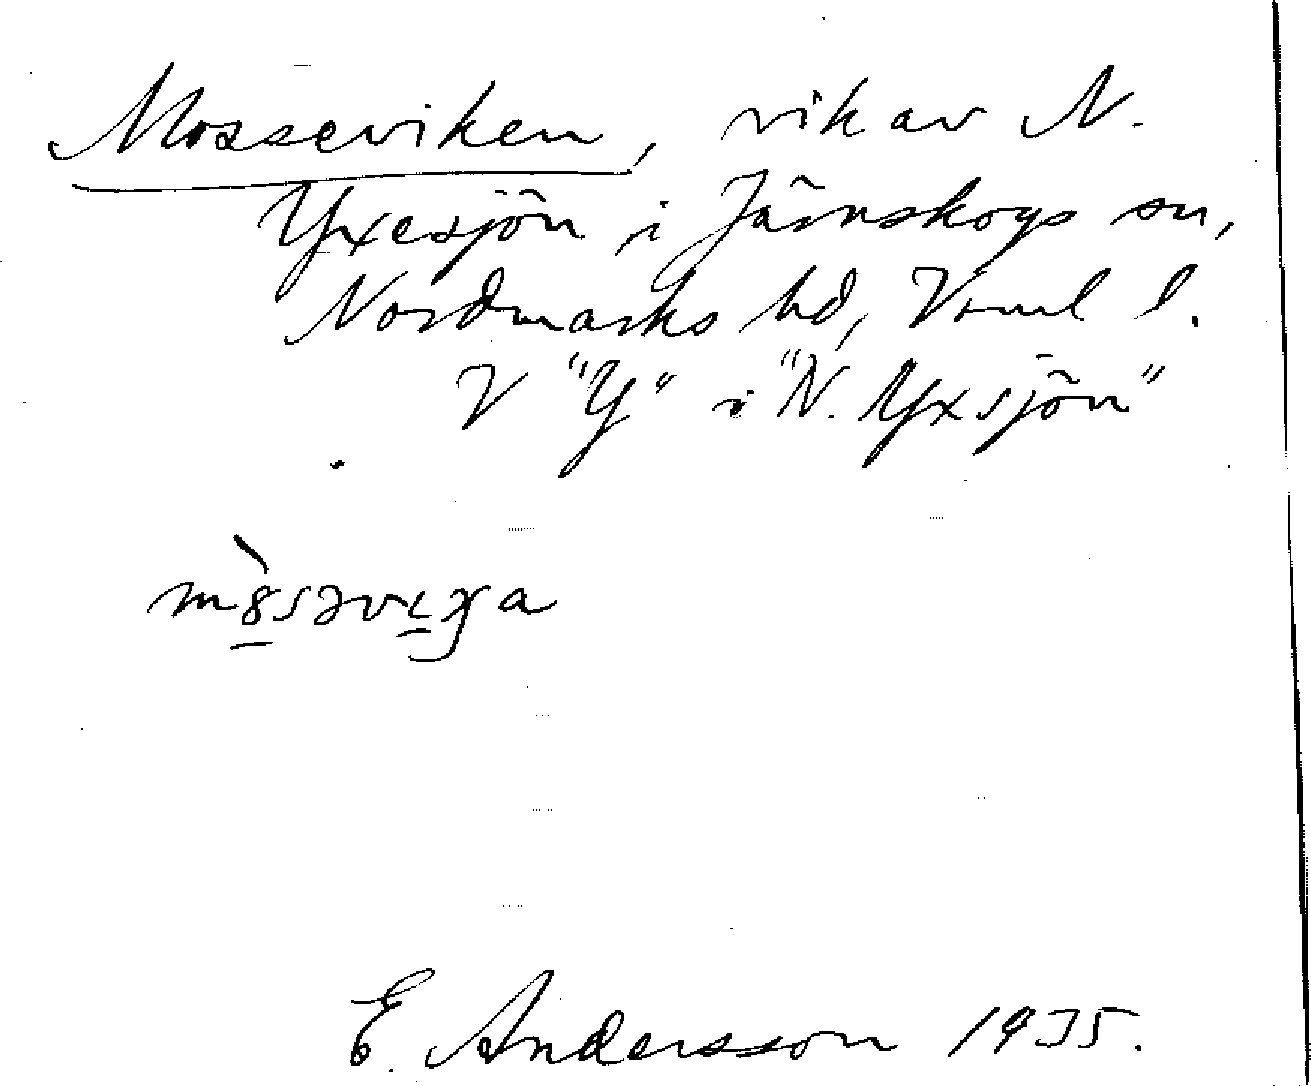 Mosseviken, vik av N.
Yxesjön i Järnskogs sn,
Nordmarks hd, Vrml l.
V "Y" i "N. Yxsjön"
E. Andersson 1935.